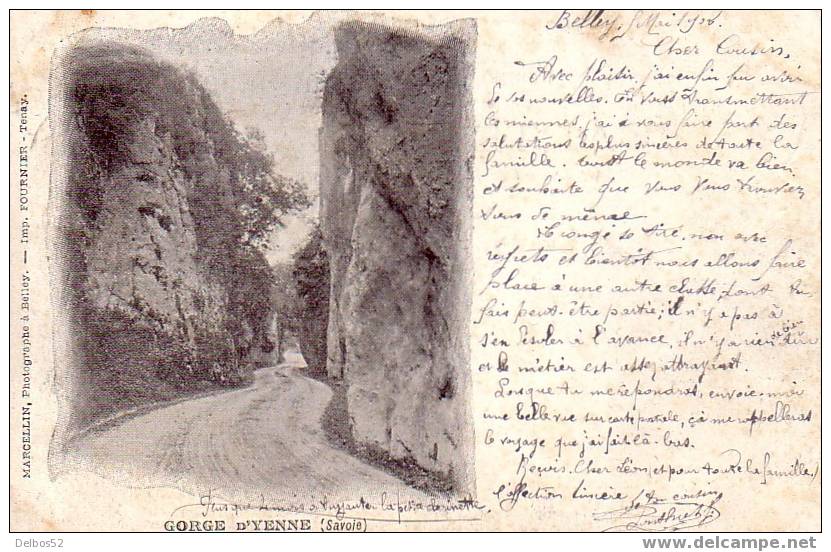 Belley, 5 Mai 1906
Cher Cousin,
Avec plaisir, j'ai enfin pu avoir
de vos nouvelles. En vous transmettant
les miennes, j'ai à vous faire part des
salutations les plus sincères de toute la
famille. tout le monde va bien
et souhaite que vous vous trouviez
tous de même
Le congé se tire, non avec
regrets et bientôt nous allons faire
place à une autre classe dont tu
fais peut-être partie; il n'y a pas à
s'en désoler à l'avance, il n'y a rien de bien dur
et le métier est assez attrayant.
Lorsque tu me répondras, envoie-moi
une belle vue sur carte postale, ça me rappellera
le voyage que j'ai fait là-bas.
Reçois Cher Léon, et pour toute la famille
l'affection sincère de ton cousin
Plus que à la
GORGE D'YENNE (Savoie)
MARCELLIN, Photographe à Belley. — Imp. FOURNIER - Tenay.
Delbos52
www.delcampe.net